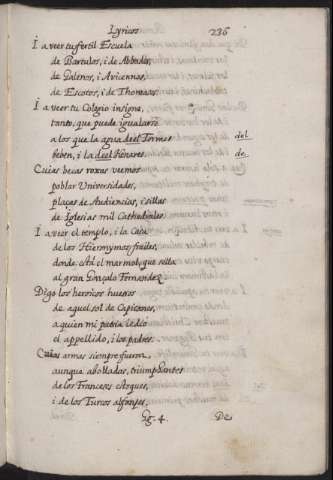 Lyricos 236
I a veer tu fertil Escuela
de Bartulos, i de Abbades,
de Galenos, i Avicennas,
de Escotos, i de Thomases.
I a veer tu Colegio insigne,
tanto, que puede igualarse
a los que la agua deel Tormes del
beben, i la deel Henares. de
Cuias becas roxas vuemos
poblar Universidades,
plaças de Audiencias, i sillas
de Iglesias mil Cathedrales.
I a veer el templo, i la Casa
de los Hieronymos frailes,
donde está el marmol, que sella
al gran Gonçalo Fernandez
Digo los heroicos huesos
de aquel sol de Capitanes,
a quien mi patria le dio
el appellido, i los padres.
Cuias armas siempre fueron,
aunque abolladas, triumphantes
de los Franceses estoques,
i de los Turcos alfanjes,
Gg. 4. De